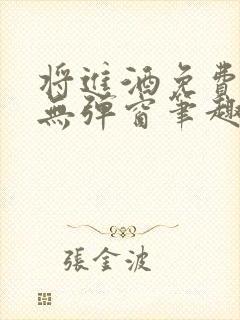 將進酒免費
無彈窗筆趣
張金波